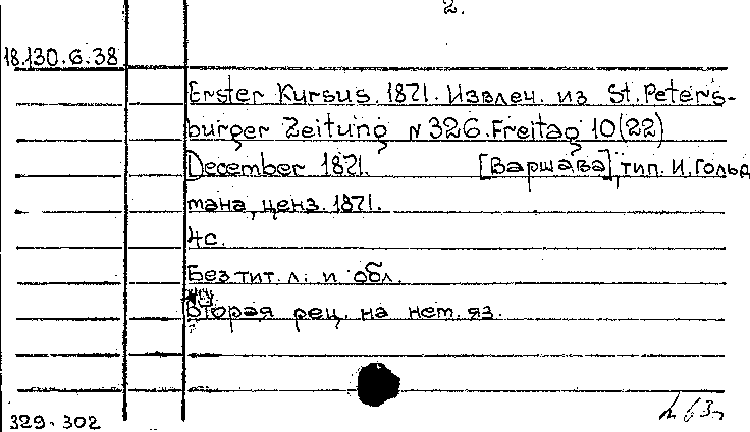 2.
18.130.6.38
Erster Kursus. 1871. Извлеч. из St. Peters-
burger Zeitung N 326. Freitag 10(22)
December 1871. [Варшава], тип. И. Гольд
мана, ценз. 1871.
4с.
Без тит. л. и обл.
Вторая рец. на нем. яз.
329-302